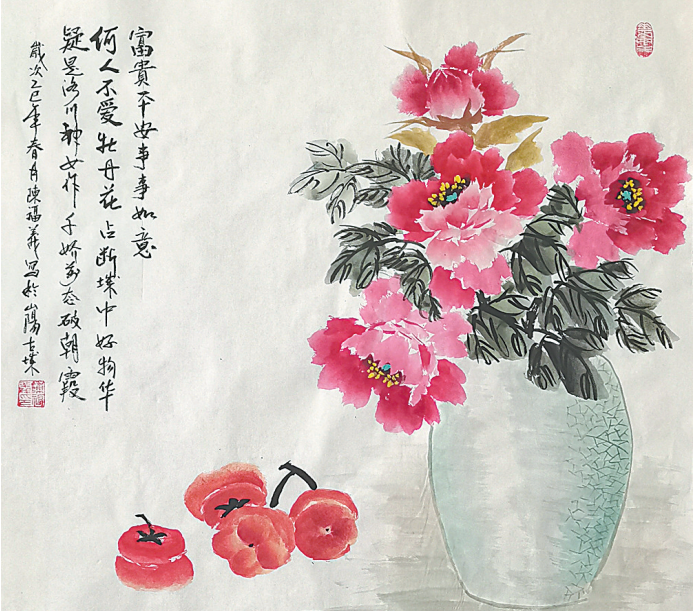 富貴平安事事如意
何人不爱牡丹花占断城中好物华
疑是洛川神女作千娇万态破朝霞
歲次乙巳年春月陳福義寫於山陽古城